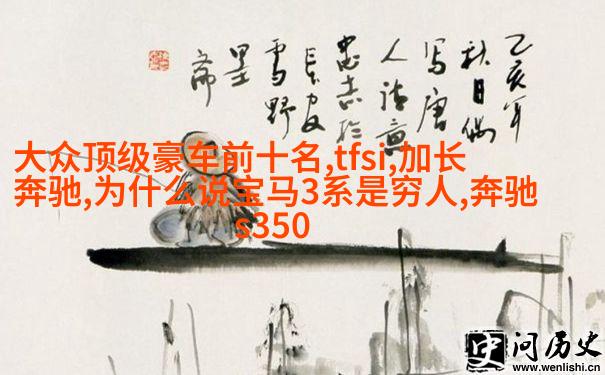 乙亥年
秋日偶
写唐
人诗意
忠志於
长安
雪野
墨斋
大众顶级豪车前十名,tfsi,加长
奔驰,为什么说宝马3系是穷人,奔驰
s350
史问历史
www.wenlishi.cn